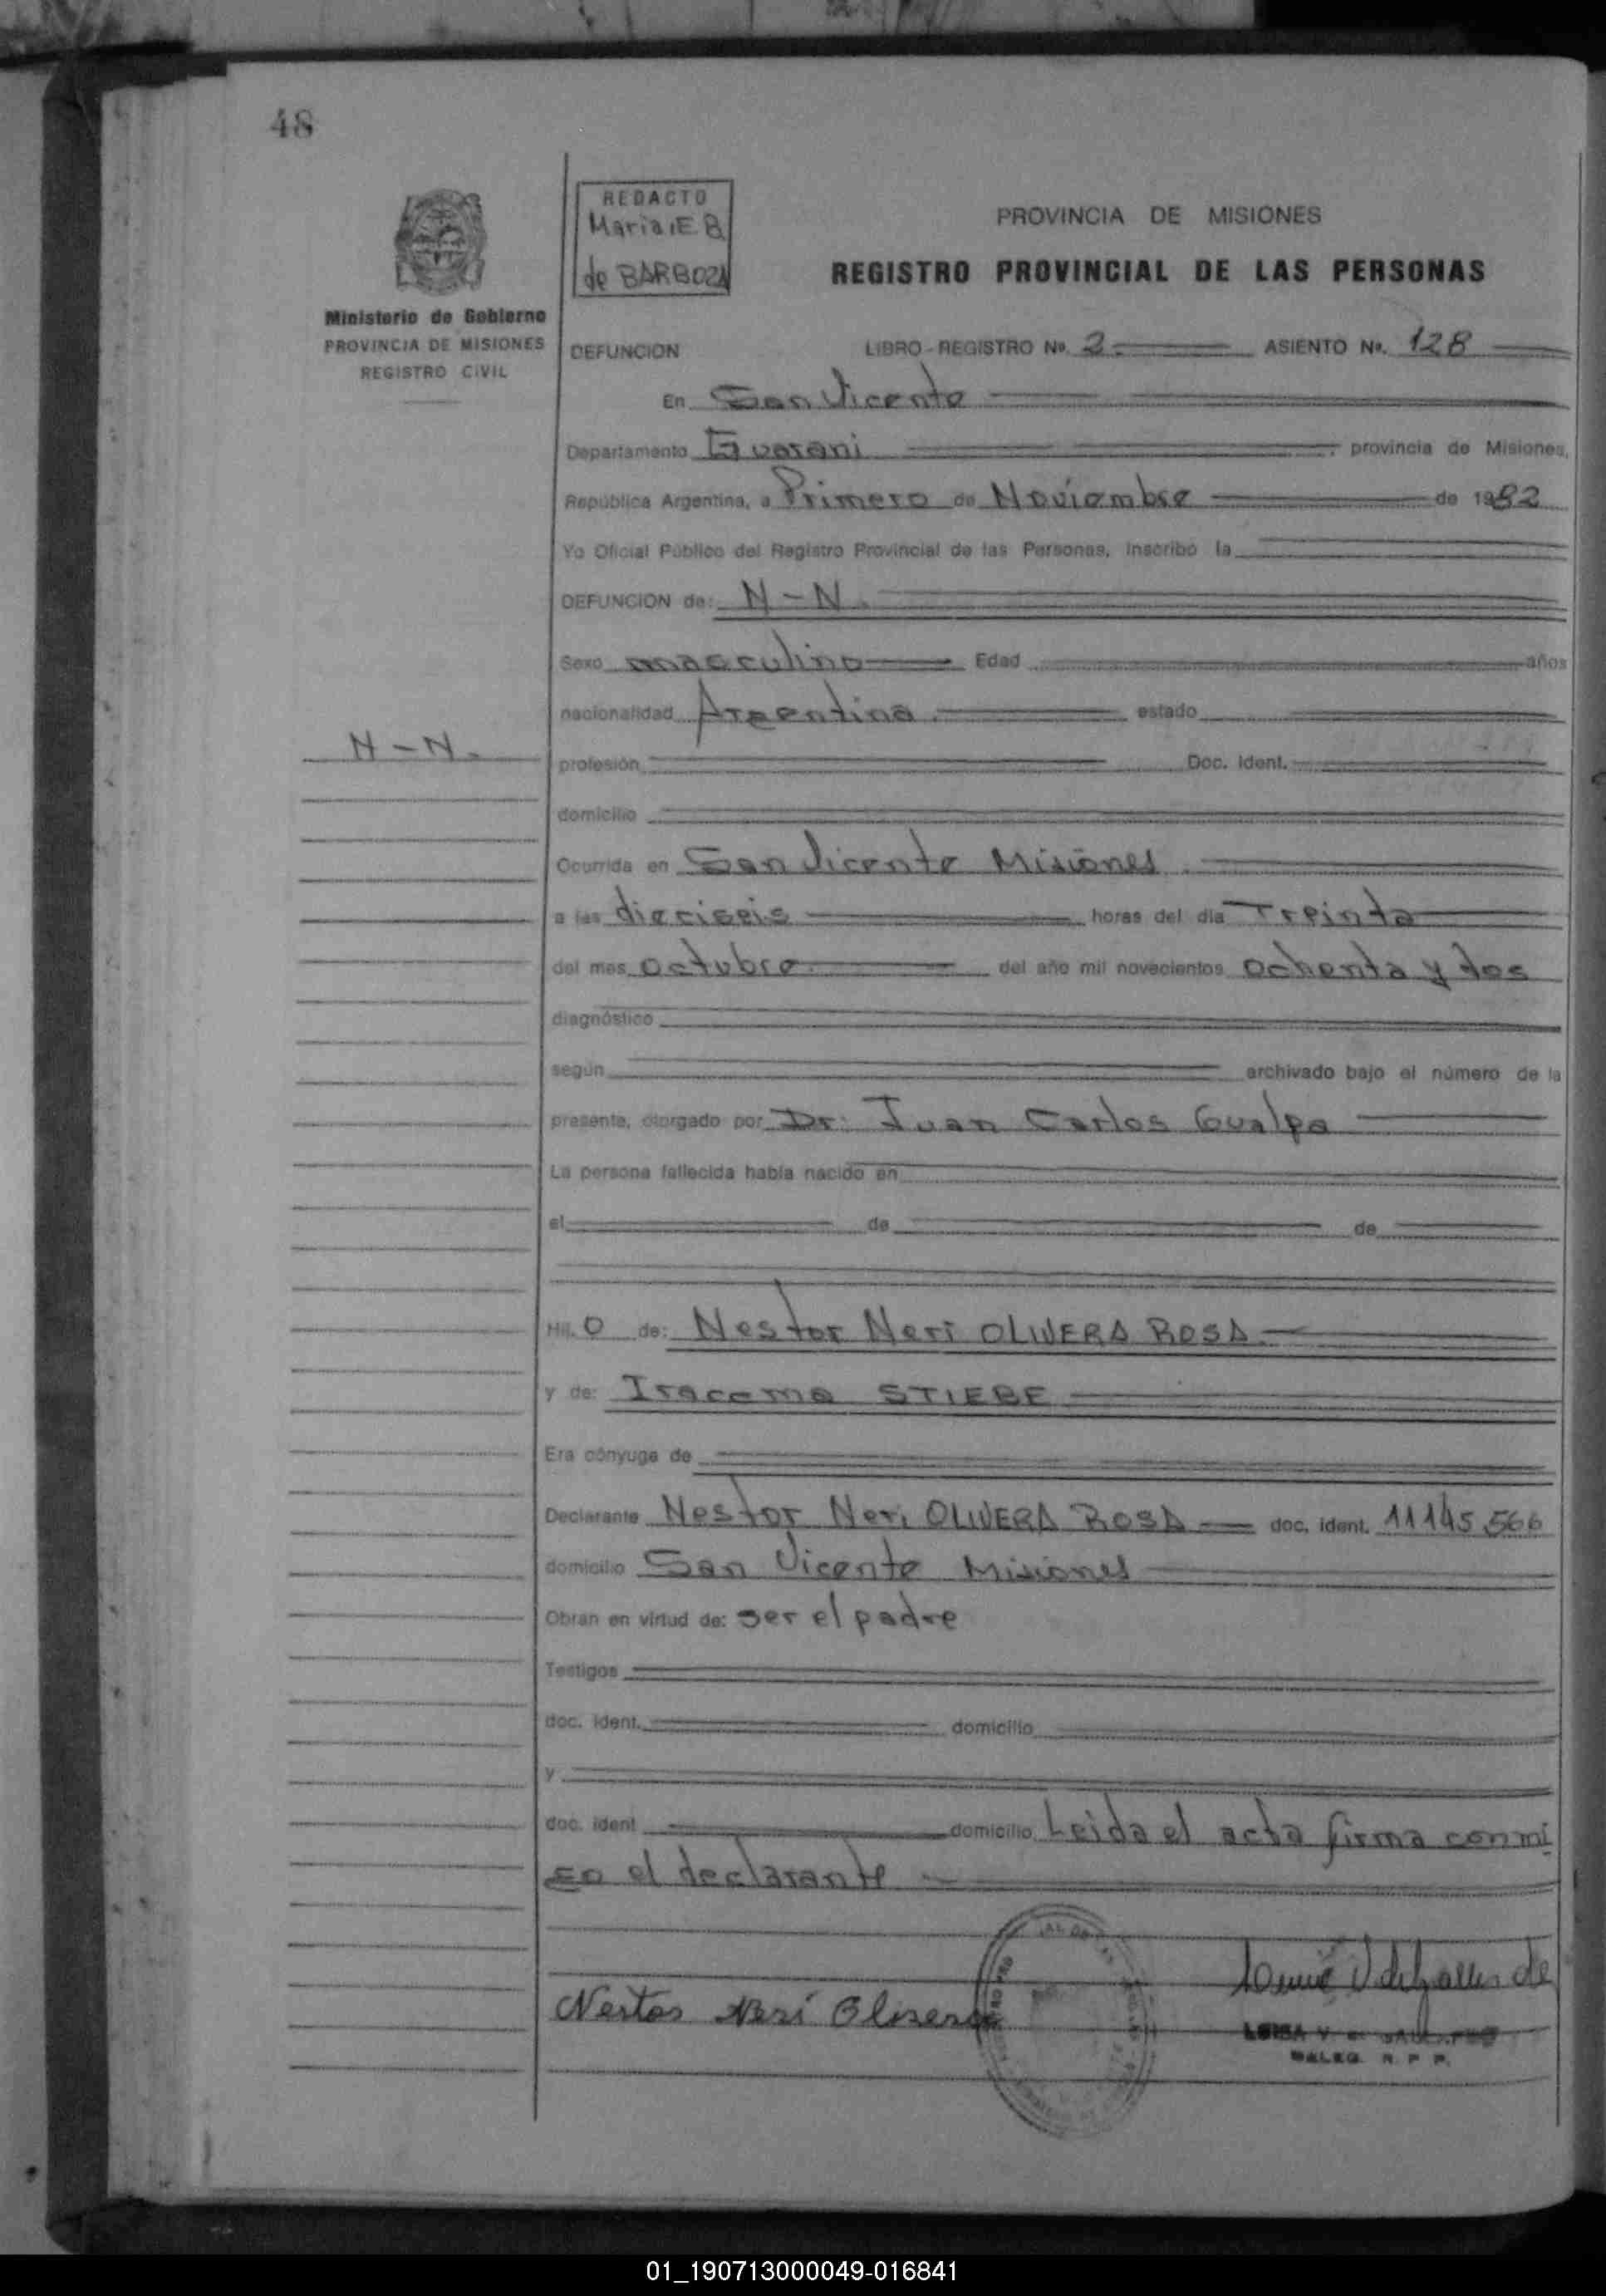 48
REDACTO
Maria E B
de BARBOZA
PROVINCIA DE MISIONES
REGISTRO PROVINCIAL DE LAS PERSONAS
Ministerio de Gobierno
PROVINCIA DE MISIONES
REGISTRO CIVIL
DEFUNCION LIBRO-REGISTRO No. 2 ASIENTO No. 128
En San Vicente
Departamento Guarani provincia de Misiones,
República Argentina, a Primero de Noviembre de 1982
Yo Oficial Público del Registro Provincial de las Personas, inscribo la
DEFUNCION de: N-N.
Sexo masculino Edad años
nacionalidad Argentina estado
N-N.
profesión Doc. Ident.
domicilio
Ocurrida en San Vicente Misiones
a las dieciseis horas del día Treinta
del mes octubre del año mil novecientos ochenta y dos
diagnóstico
según archivado bajo el número de la
presente, otorgado por Dr: Juan Carlos Gualpa
La persona fallecida había nacido en
el de de
Hij o de: Nestor Neri OLIVERA ROSA
y de: Iracema STIEBE
Era cónyuge de
Declarante Nestor Neri OLIVERA ROSA doc. ident. 11145.566
domicilio San Vicente Misiones
Obran en virtud de: ser el padre
Testigos
doc. ident. domicilio
y
doc. ident domicilio Leida el acta firma conmi
go el declarante
Nestor Neri Olivera
LUISA V.
R. P. P.
01_190713000049-016841